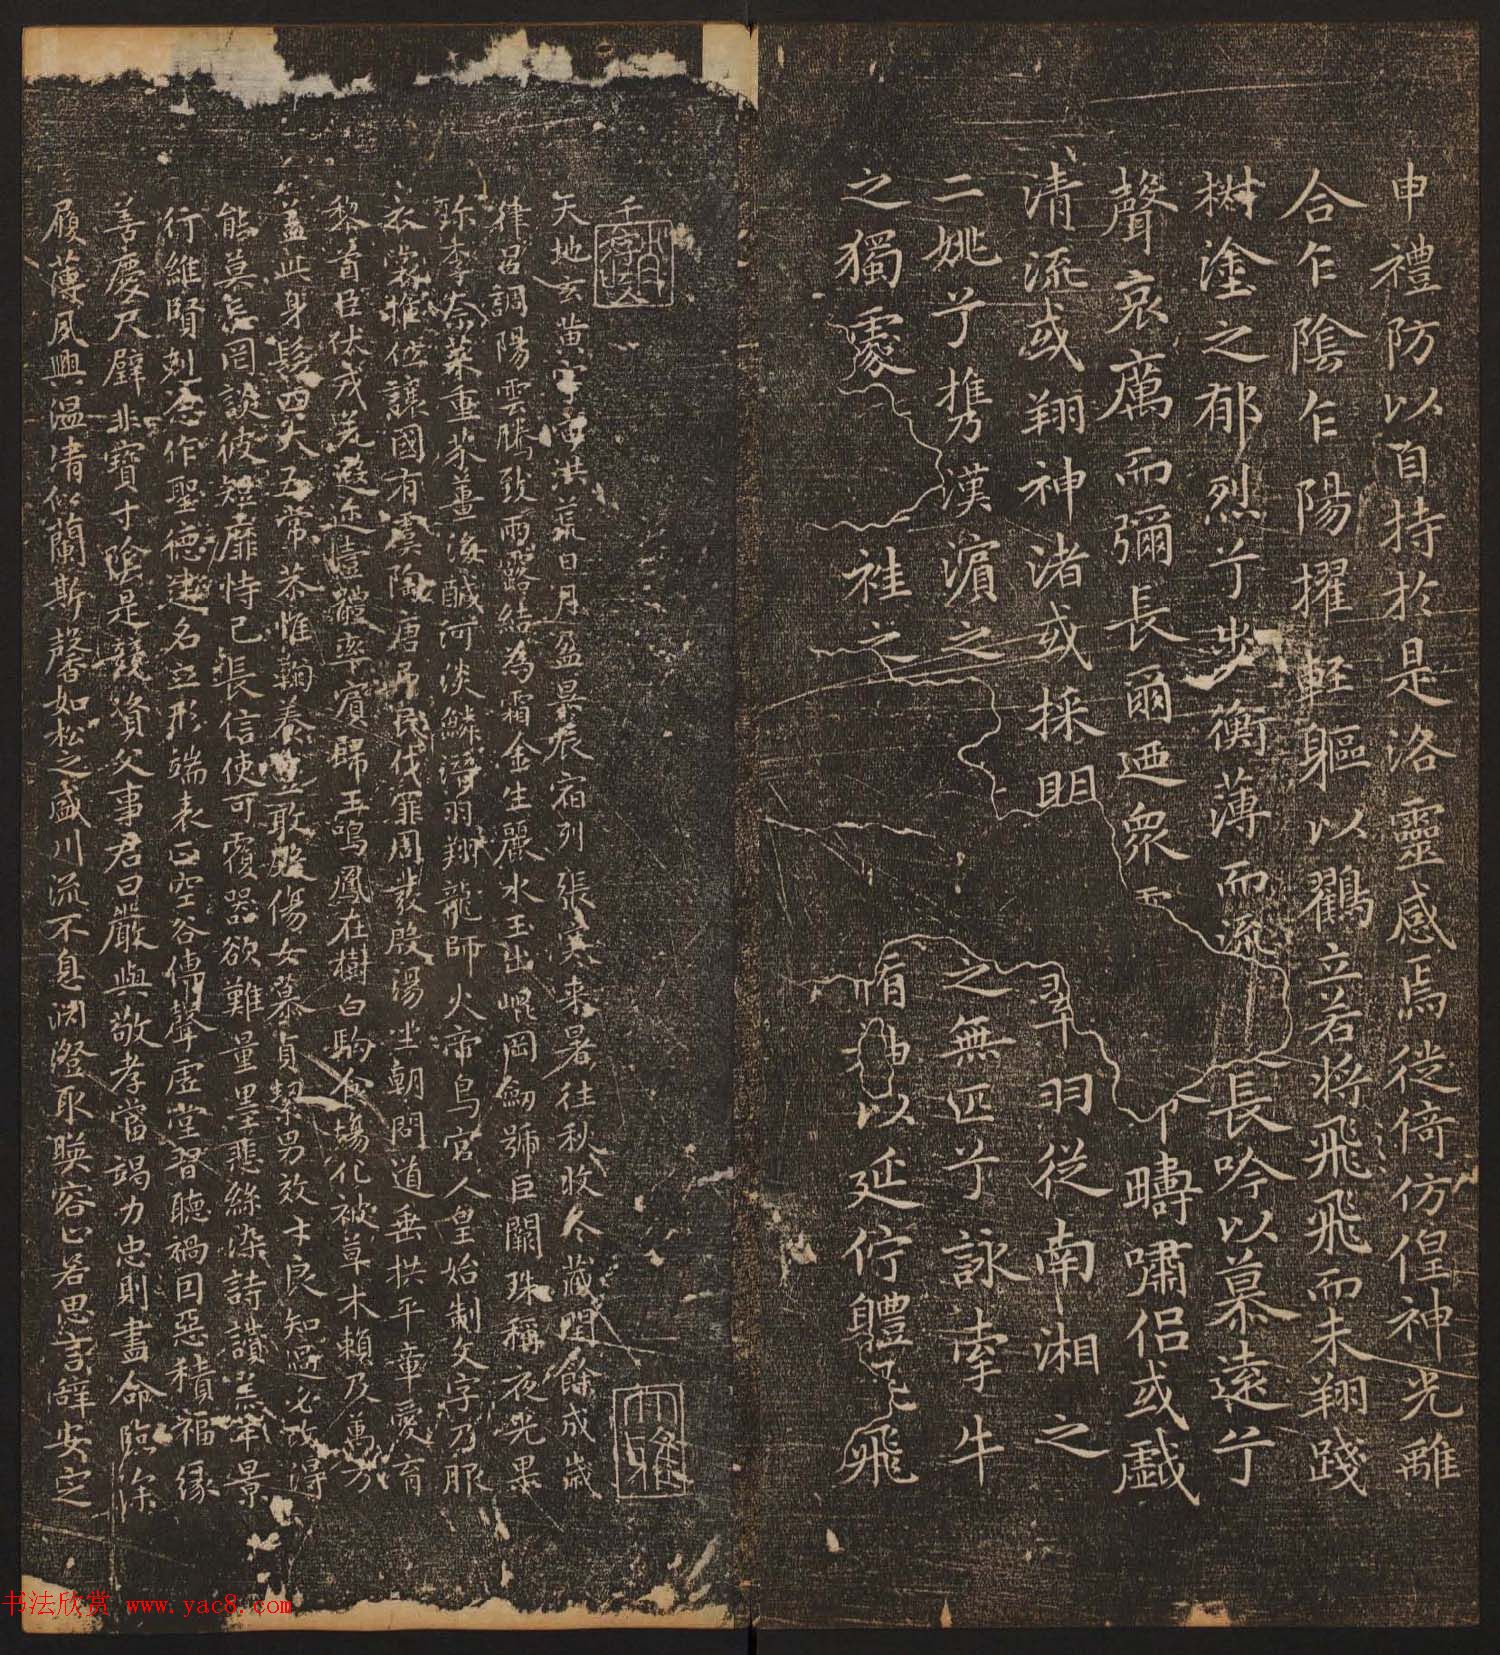 申禮防以自持於是洛靈感焉徙倚仿偟神光離
合乍陰乍陽擢軽軀以鸛立若將飛飛而未翔踐
樹塗之郁烈兮步衡薄而流長吟以慕遠兮
聲哀厲而彌長爾迺眾而下疇嘯侶或戲
清流或翔神渚或採明翠羽從南湘之
二姚兮攜漢濵之之無匹兮詠牽牛
之獨處袿之脩袖以延佇體飛
千字文
天地玄黃宇宙洪荒日月盈昃辰宿列張寒來暑往秋收冬藏閏餘成歲
律呂調陽雲騰致雨露結為霜金生麗水玉出崐岡劒號巨闕珠稱夜光菓
珎李柰菜重芥薑海鹹河淡鱗潛羽翔龍師火帝鳥官人皇始制文字乃服
衣裳推位讓國有虞陶唐弔民伐罪周發殷湯坐朝問道垂拱平章愛育
黎首臣伏戎羌遐迩壹體率賓歸王鳴鳳在樹白駒食場化被草木賴及萬方
蓋此身髮四大五常恭惟鞠養豈敢毀傷女慕貞絜男效才良知過必改得
能莫忘罔談彼短靡恃己長信使可覆器欲難量墨悲絲染詩讚羔羊景
行維賢剋念作聖德建名立形端表正空谷傳聲虛堂習聽禍因惡積福緣
善慶尺璧非寶寸陰是競資父事君曰嚴與敬孝當竭力忠則盡命臨深
履薄夙興温凊似蘭斯馨如松之盛川流不息淵澄取暎容止若思言辭安定
书法欣赏 www.yac8.com